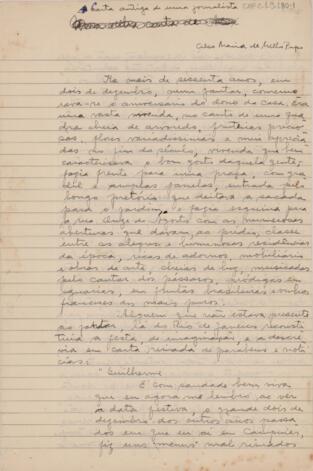 Carta antiga de uma jornalista
Celso Maria de Mello Pupo
Ha mais de sessenta anos, em
dois de dezembro, num jantar, comemo
rava-se o aniversario do dono da casa. Era
uma vasta vivenda, no canto de uma qua
dra cheia de arvoredo, fruteiras precio
sas, flores variadissimas e mui aprecia
das no fim do seculo, vivenda que bem
caracterisava o bom gosto daquela gente;
fazia frente para uma praça, com gra
dil e amplas janelas, entrada pelo
longo que deitava a sacada
para o jardim, e fazia esquina para
a rua com as numerosas
aberturas que davam, ao predio, classe
entre as alegres e luminosas residências
da época, ricas de adornos, mobiliarios
e obras de arte, cheias de luz, musicadas
pelo cantar dos passaros, prodigas em
iguarias, em frutas brasileiras e vinhos
franceses dos mais puros.
Alguem que não estava presente
ao jantar, lá do Rio de Janeiro reconsti
tuiu a festa, de imaginação, e a descre
via em carta recheada de parabens e noti
cias:
"Guilherme
É com saudade bem viva
que eu agora me lembro ao ver
a data festiva, o grande dois de
dezembro dos outros anos passa
dos em que eu ai em Campinas,
fiz uns menus mal rimados